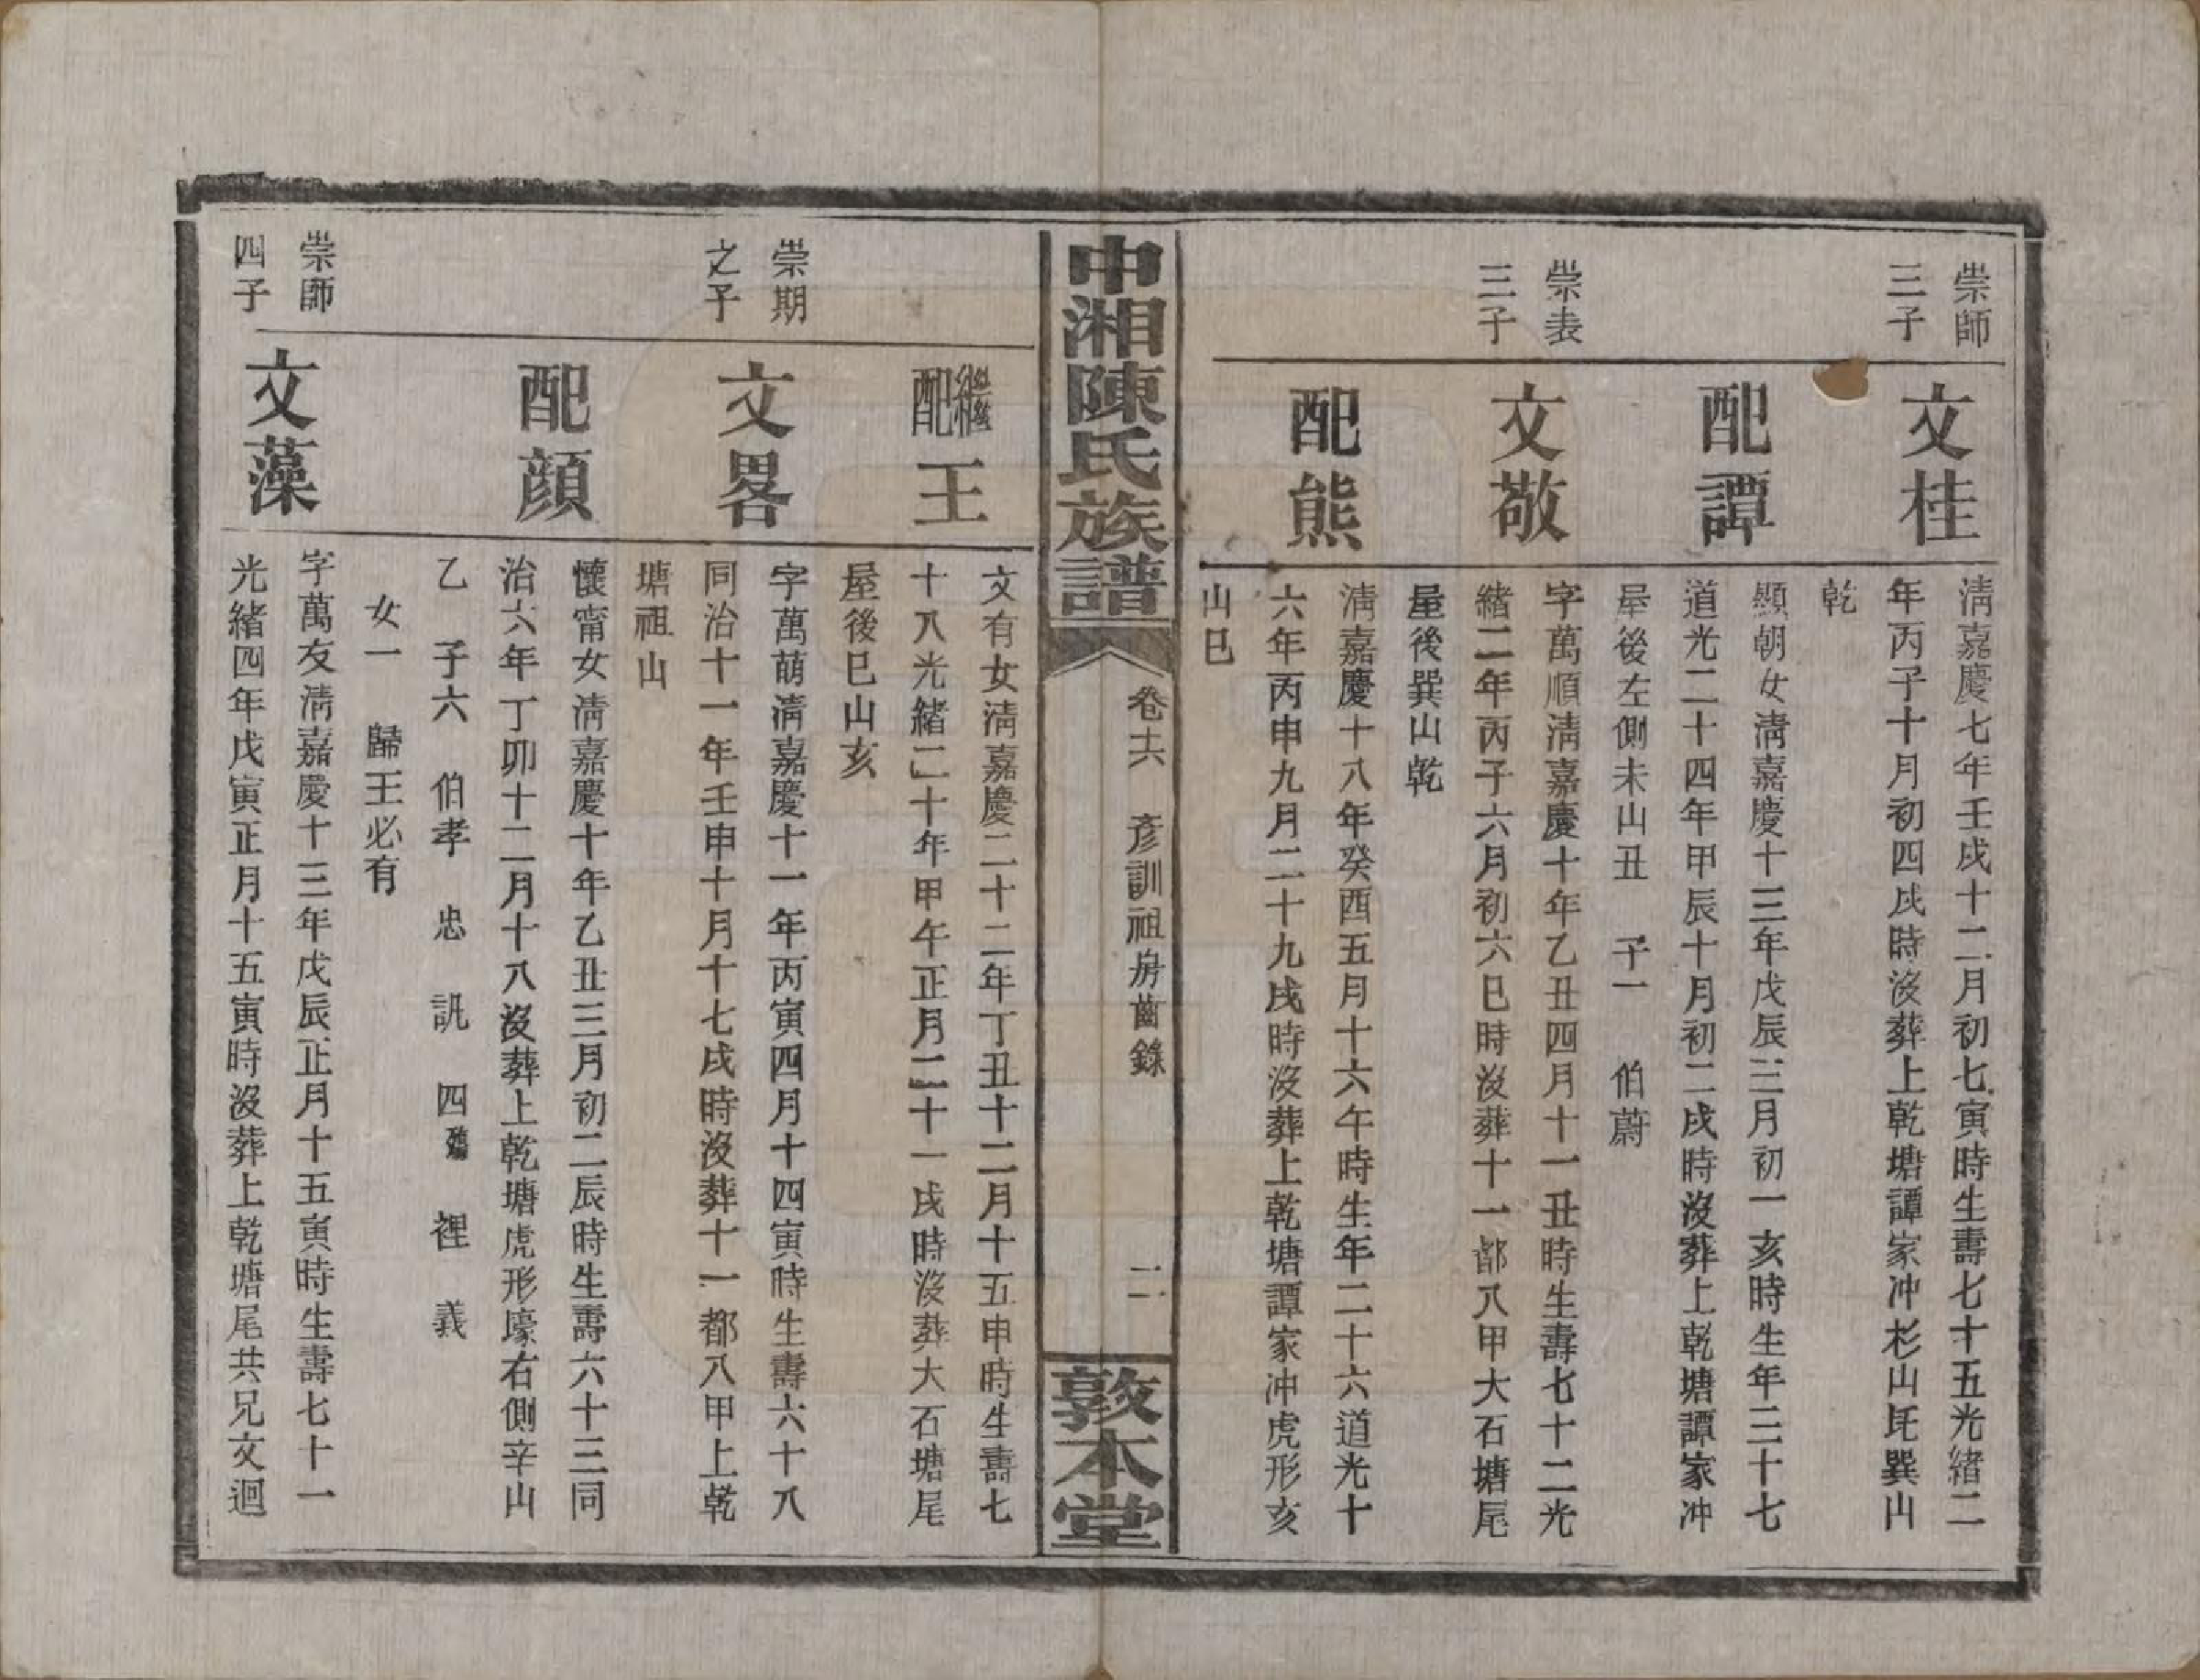 崇師
三子
文桂
清嘉慶七年壬戌十二月初七寅時生壽七十五光緒二
年丙子十月初四戌時沒葬上乾塘譚家冲杉山圫巽山
乾
配譚
顯朝女清嘉慶十三年戊辰三月初一亥時生年三十七
道光二十四年甲辰十月初二戌時沒葬上乾塘譚家冲
屋後左側未山丑 子一 伯蔚
崇表
三子
文敬
字萬順清嘉慶十年乙丑四月十一丑時生壽七十二光
緒二年丙子六月初六巳時沒葬十一都八甲大石塘尾
屋後巽山乾
配熊
清嘉慶十八年癸酉五月十六午時生年二十六道光十
六年丙申九月二十九戌時沒葬上乾塘譚家冲虎形亥
山巳
中湘陳氏族譜
卷十六 彥訓祖房齒錄 二
敦本堂
繼配王
文有女清嘉慶二十二年丁丑十二月十五申時生壽七
十八光緒二十年甲午正月二十一戌時沒葬大石塘尾
屋後巳山亥
崇期
之子
文畧
字萬萌清嘉慶十一年丙寅四月十四寅時生壽六十八
同治十一年壬申十月十七戌時沒葬十一都八甲上乾
塘祖山
配顏
懷甯女清嘉慶十年乙丑三月初二辰時生壽六十三同
治六年丁卯十二月十八沒葬上乾塘虎形壕右側辛山
乙 子六 伯孝 忠 訊 四殤 裡 義
女一 歸王必有
崇師
四子
文藻
字萬友清嘉慶十三年戊辰正月十五寅時生壽七十一
光緒四年戊寅正月十五寅時沒葬上乾塘尾共兄文迴